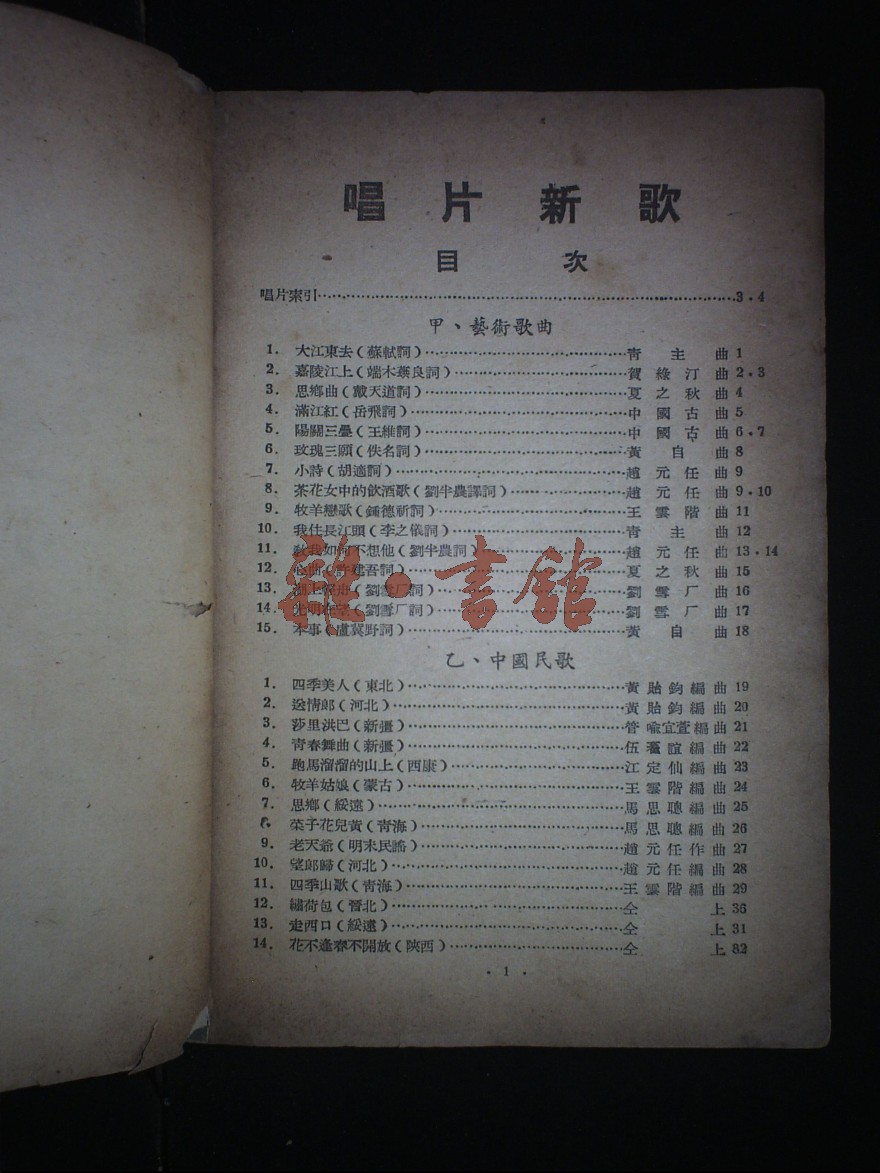 唱片新歌
目次
唱片索引……3.4
甲、藝術歌曲
1. 大江東去(蘇軾詞)……青主曲 1
2. 嘉陵江上(端木蕻良詞)……賀綠汀曲 2.3
3. 思鄉曲(戴天道詞)……夏之秋曲 4
4. 滿江紅(岳飛詞)……中國古曲 5
5. 陽關三疊(王維詞)……中國古曲 6.7
6. 玫瑰三願(佚名詞)……黃自曲 8
7. 小詩(胡適詞)……趙元任曲 9
8. 茶花女中的飲酒歌(劉半農譯詞)……趙元任曲 9.10
9. 牧羊戀歌(鍾德祈詞)……王雲階曲 11
10. 我住長江頭(李之儀詞)……青主曲 12
11. 教我如何不想他(劉半農詞)……趙元任曲 13.14
12. 心曲(許建吾詞)……夏之秋曲 15
13. 湖上(劉雪厂詞)……劉雪厂曲 16
14. 光明在望(劉雪厂詞)……劉雪厂曲 17
15. 本事(盧冀野詞)……黃自曲 18
雜·書館
乙、中國民歌
1. 四季美人(東北)……黃貽鈞編曲 19
2. 送情郎(河北)……黃貽鈞編曲 20
3. 莎里洪巴(新疆)……管喻宜萱編曲 21
4. 青春舞曲(新疆)……伍編曲 22
5. 跑馬溜溜的山上(西康)……江定仙編曲 23
6. 牧羊姑娘(蒙古)……王雲階編曲 24
7. 思鄉(綏遠)……馬思聰編曲 25
8. 菜子花兒黃(青海)……馬思聰編曲 26
9. 老天爺(明末民謠)……趙元任作曲 27
10. 望郎歸(河北)……趙元任編曲 28
11. 四季山歌(青海)……王雲階編曲 29
12. 繡荷包(晉北)……仝上 36
13. 走西口(綏遠)……仝上 31
14. 花不逢春不開放(陝西)……仝上 32
·1·